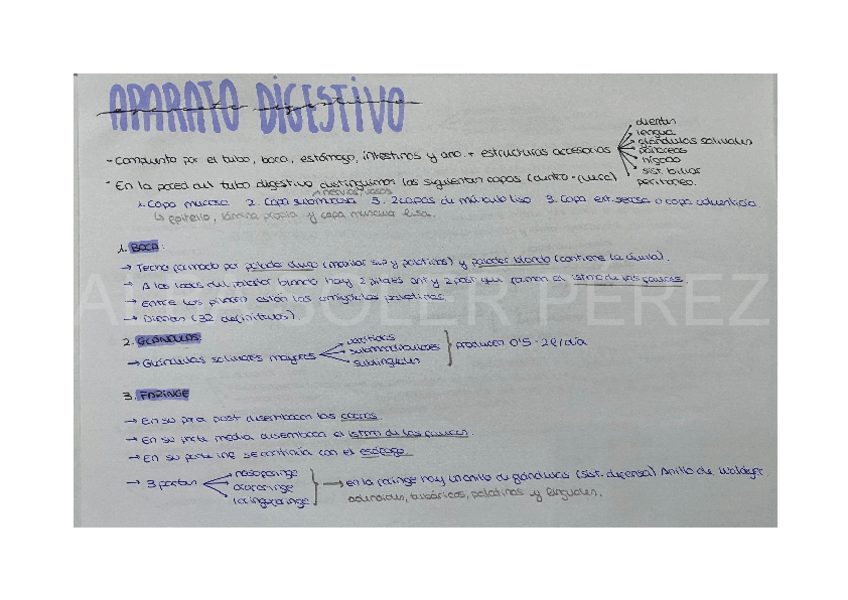 APARATO DIGESTIVO
- Compuesto por el tubo, boca, estómago, intestinos y ano. + estructuras accesorias
dientes
lengua
glándulas salivales
páncreas
hígado
sist. biliar
peritoneo.
- En la pared del tubo digestivo distinguimos las siguientes capas (dentro-fuera)
nervios/vasos
1. Capa mucosa 2. Capa submucosa 3. 2 capas de músculo liso 3. Capa ext. serosa o capa adventicia.
epitelio, lámina propia y capa muscular lisa.
1. BOCA:
→ Techo formado por paladar duro (maxilar sup y palatinos) y paladar blando (contiene la úvula).
→ A los lados del paladar blando hay 2 pilares ant y 2 post que forman el istmo de las fauces.
→ Entre los pilares están las amígdalas palatinas.
→ Dientes (32 definitivos)
2. GLÁNDULAS
→ Glándulas salivares mayores
parótidas
submandibulares
sublinguales
producen 0'5 - 2l/día
3. FARINGE
→ En su pared post desembocan las coanas.
→ En su parte media desemboca el istmo de las fauces.
→ En su parte inf se continúa con el esófago.
→ 3 partes
nasofaringe
orofaringe
laringofaringe
→ en la faringe hay un anillo de glándulas (sist. defensa) Anillo de Waldeyer
adenoides, tubáricas, palatinas y linguales.
SOLER PEREZ